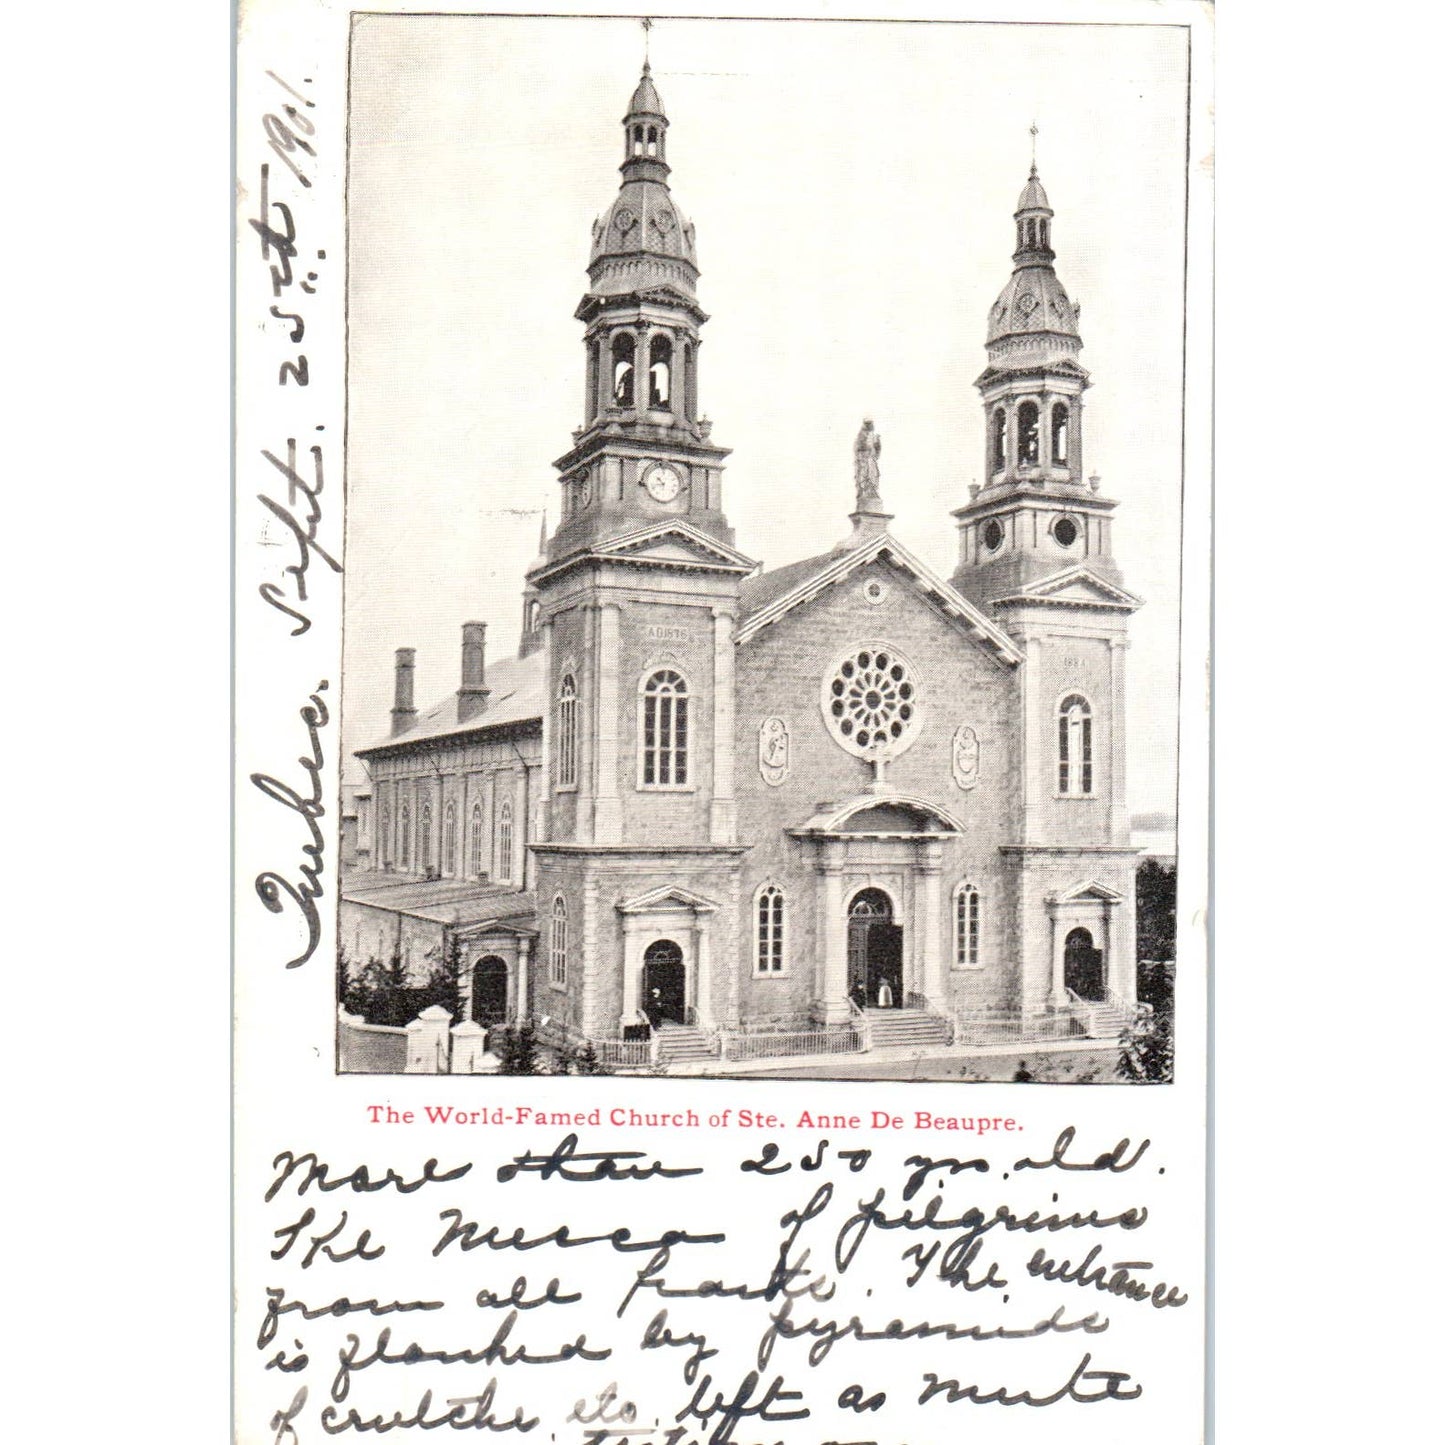 Quebec. Sept. 25th 1901.
A.D 1876
The World-Famed Church of Ste. Anne De Beaupre.
More than 250 yrs. old.
The Mecca of pilgrims
from all parts. The entrance
is flanked by pyramids
of crutche etc. left as mute